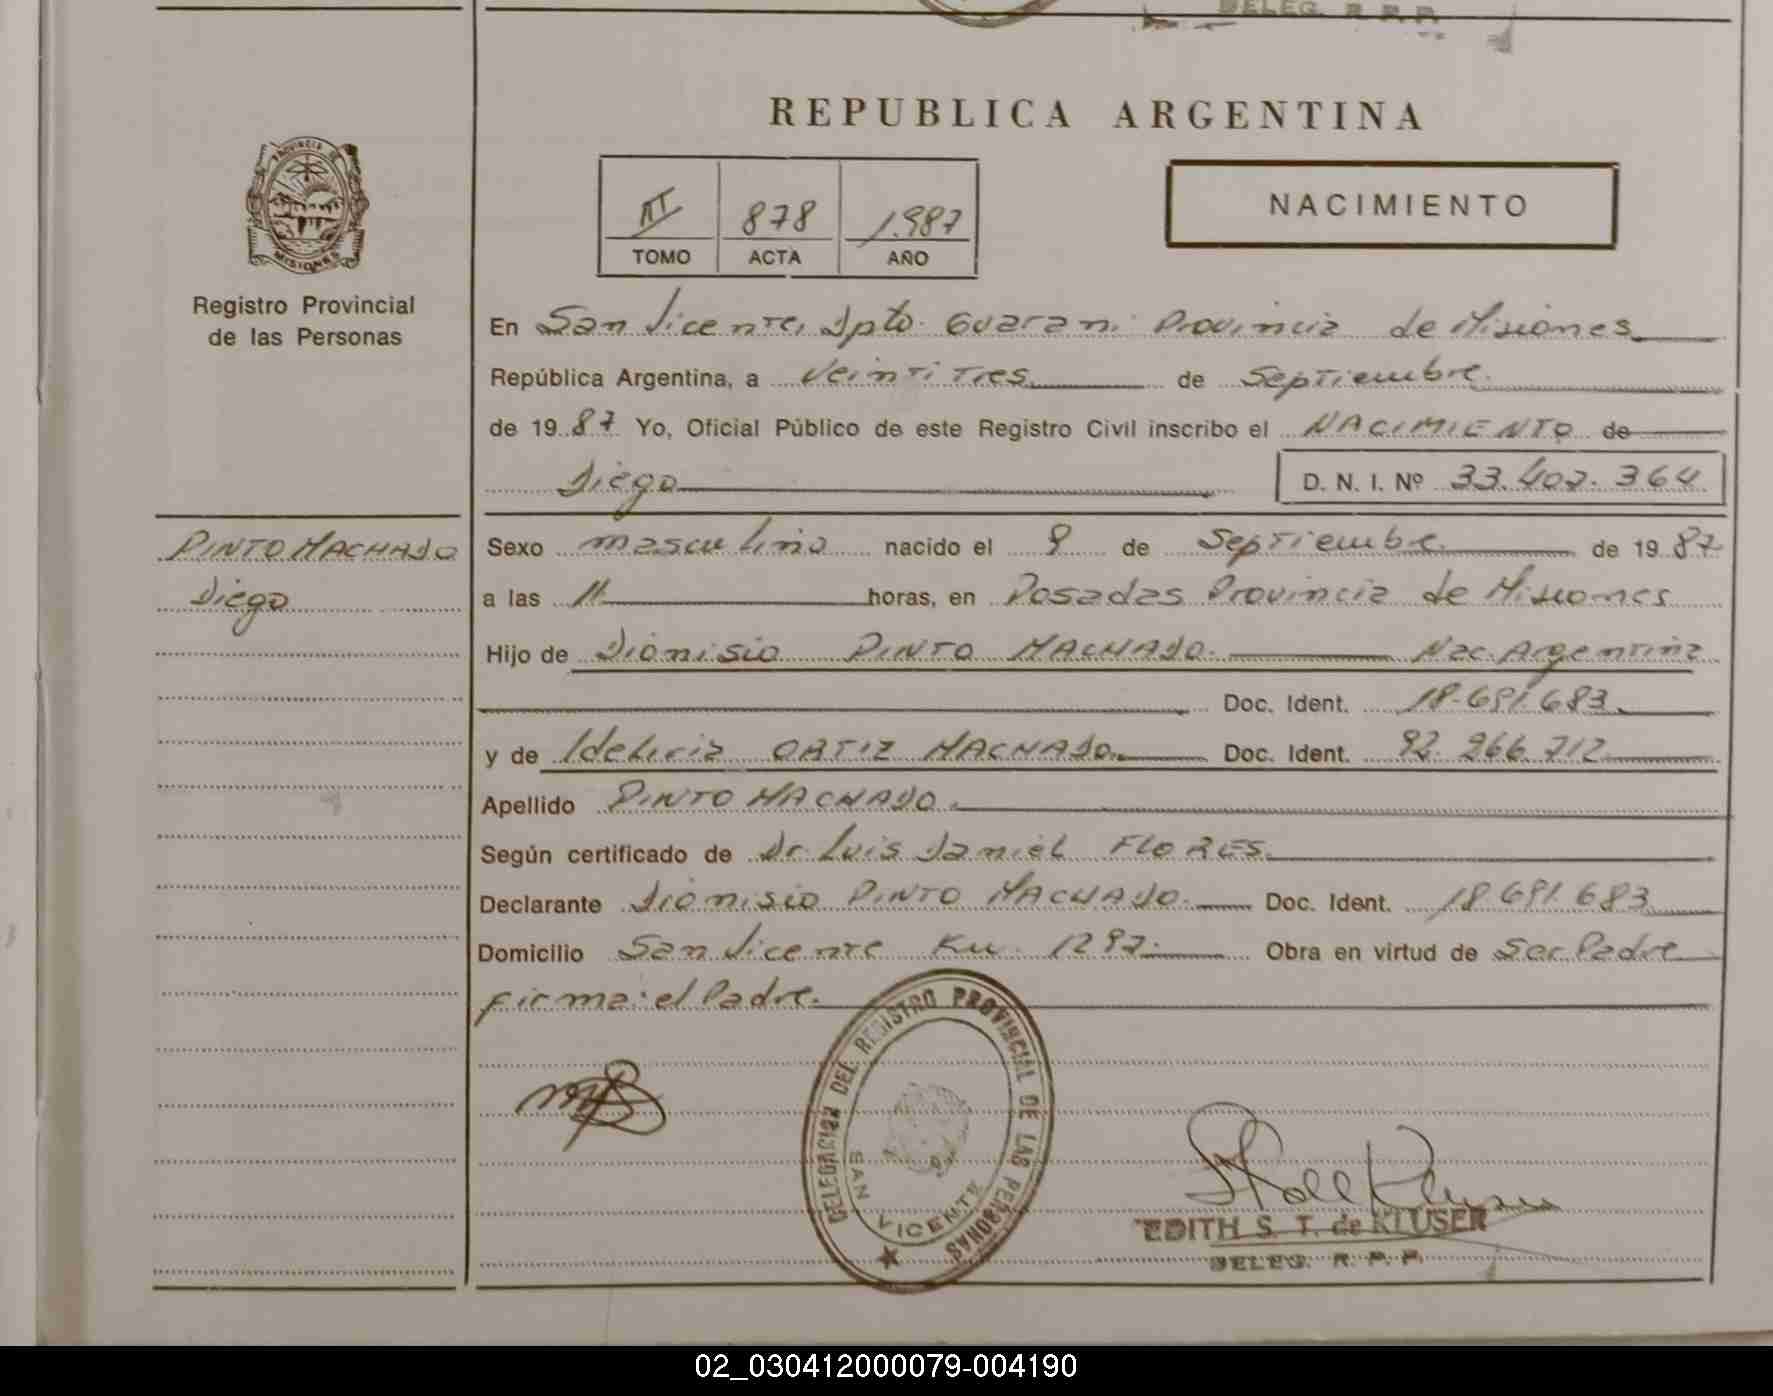 DELEG. R. P. P.
REPUBLICA ARGENTINA
PROVINCIA DE MISIONES
Registro Provincial
de las Personas
878 1.987
TOMO ACTA AÑO
NACIMIENTO
En San Vicente, Dpto. Guarani Provincia de Misiones
República Argentina, a Veintitres de Septiembre.
de 1987 Yo, Oficial Público de este Registro Civil inscribo el NACIMIENTO de
Diego D. N. I. Nº 33.402.364
PINTO MACHADO
Diego
Sexo masculino nacido el 9 de Septiembre de 1987
a las 11 horas, en Posadas Provincia de Misiones
Hijo de Dionisio PINTO MACHADO. Nac. Argentina
Doc. Ident. 18.691.683
y de Idelicia ORTIZ MACHADO. Doc. Ident. 92.266.712
Apellido PINTO MACHADO.
Según certificado de Dr. Luis Daniel FLORES.
Declarante Dionisio PINTO MACHADO. Doc. Ident. 18.691.683
Domicilio San Vicente Km. 1297. Obra en virtud de Ser Padre
firma: el Padre.
DELEGACION DEL REGISTRO PROVINCIAL DE LAS PERSONAS
SAN VICENTE
EDITH S. T. de KLUSER
DELEG. R. P. P.
02_030412000079-004190